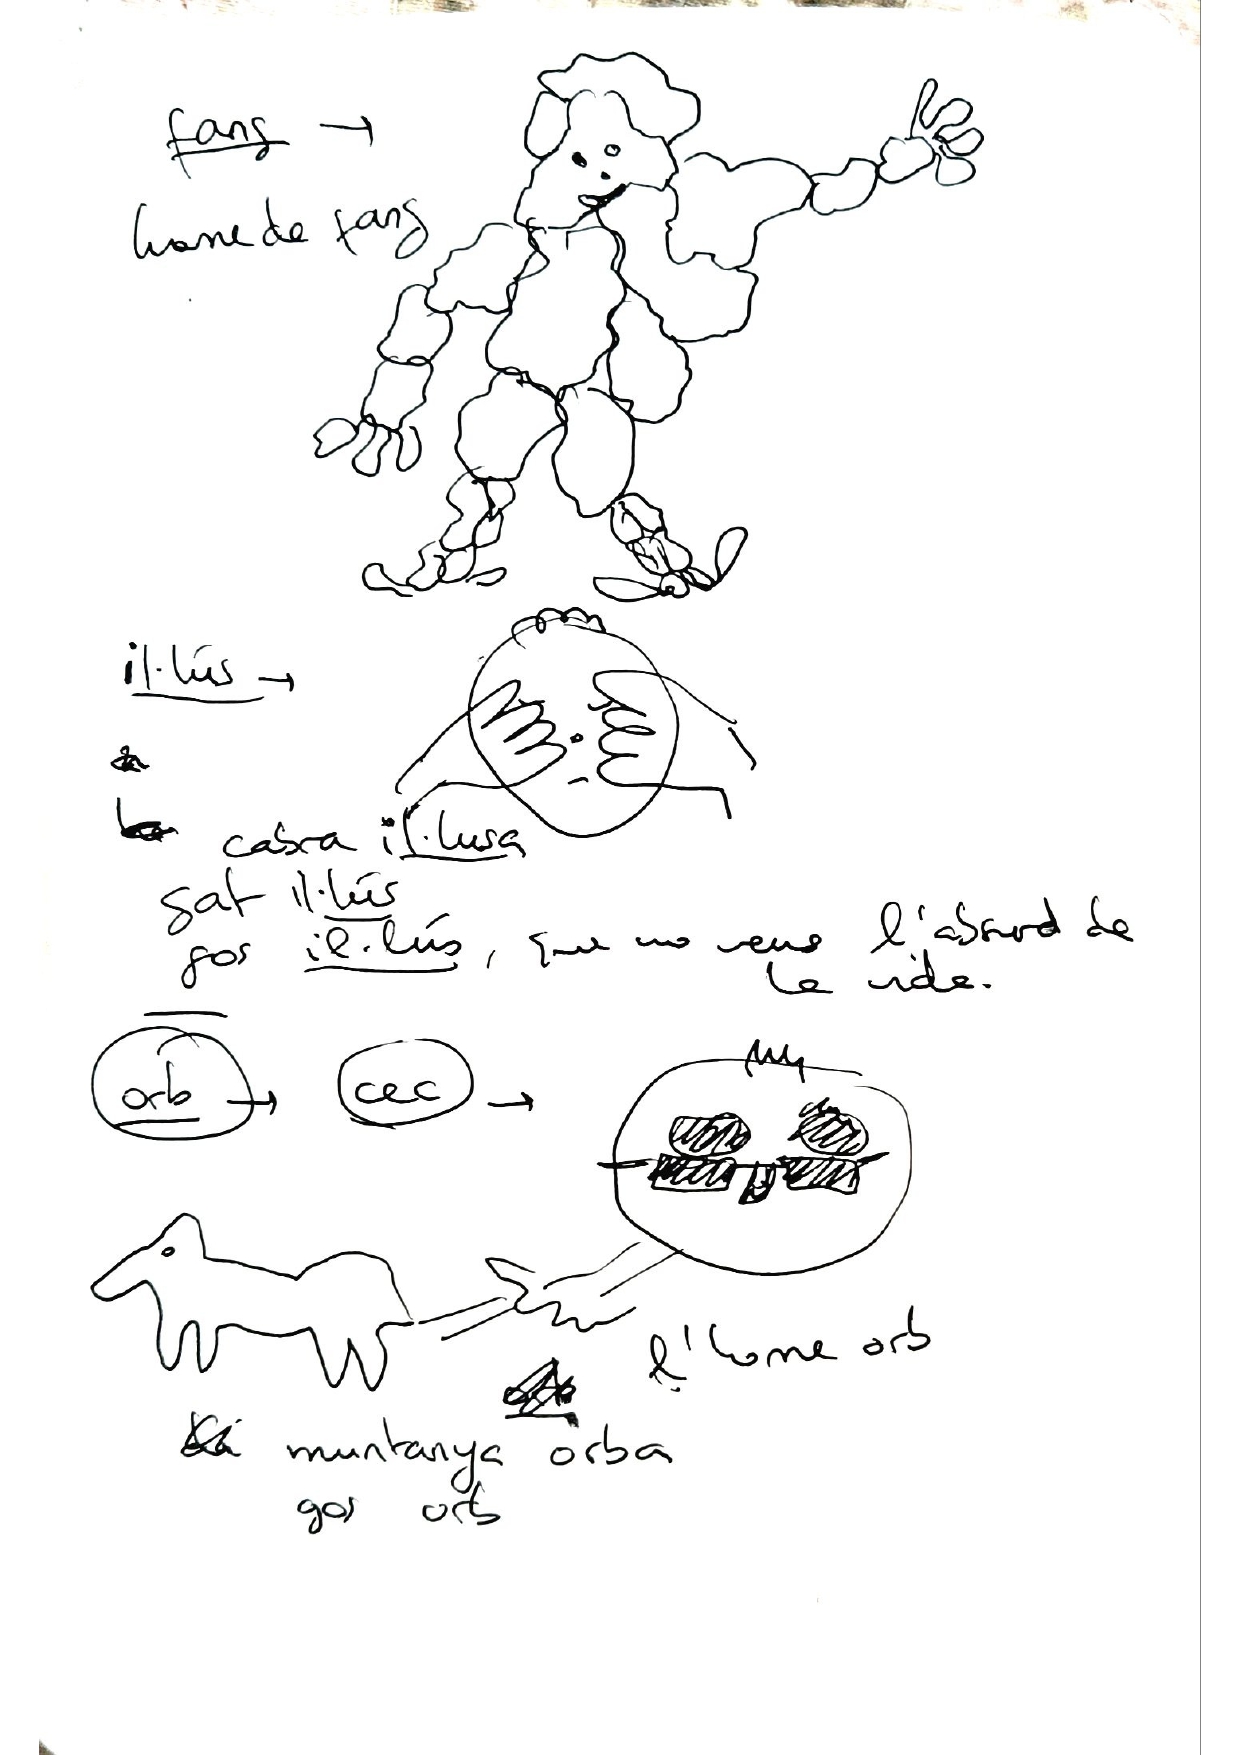 fang →
home de fang
il·lús →
cabra il·lusa
gat il·lús
gos il·lús, que no veus l'absurd de
la vida.
orb → cec →
l'home orb
muntanya orba
gos orb